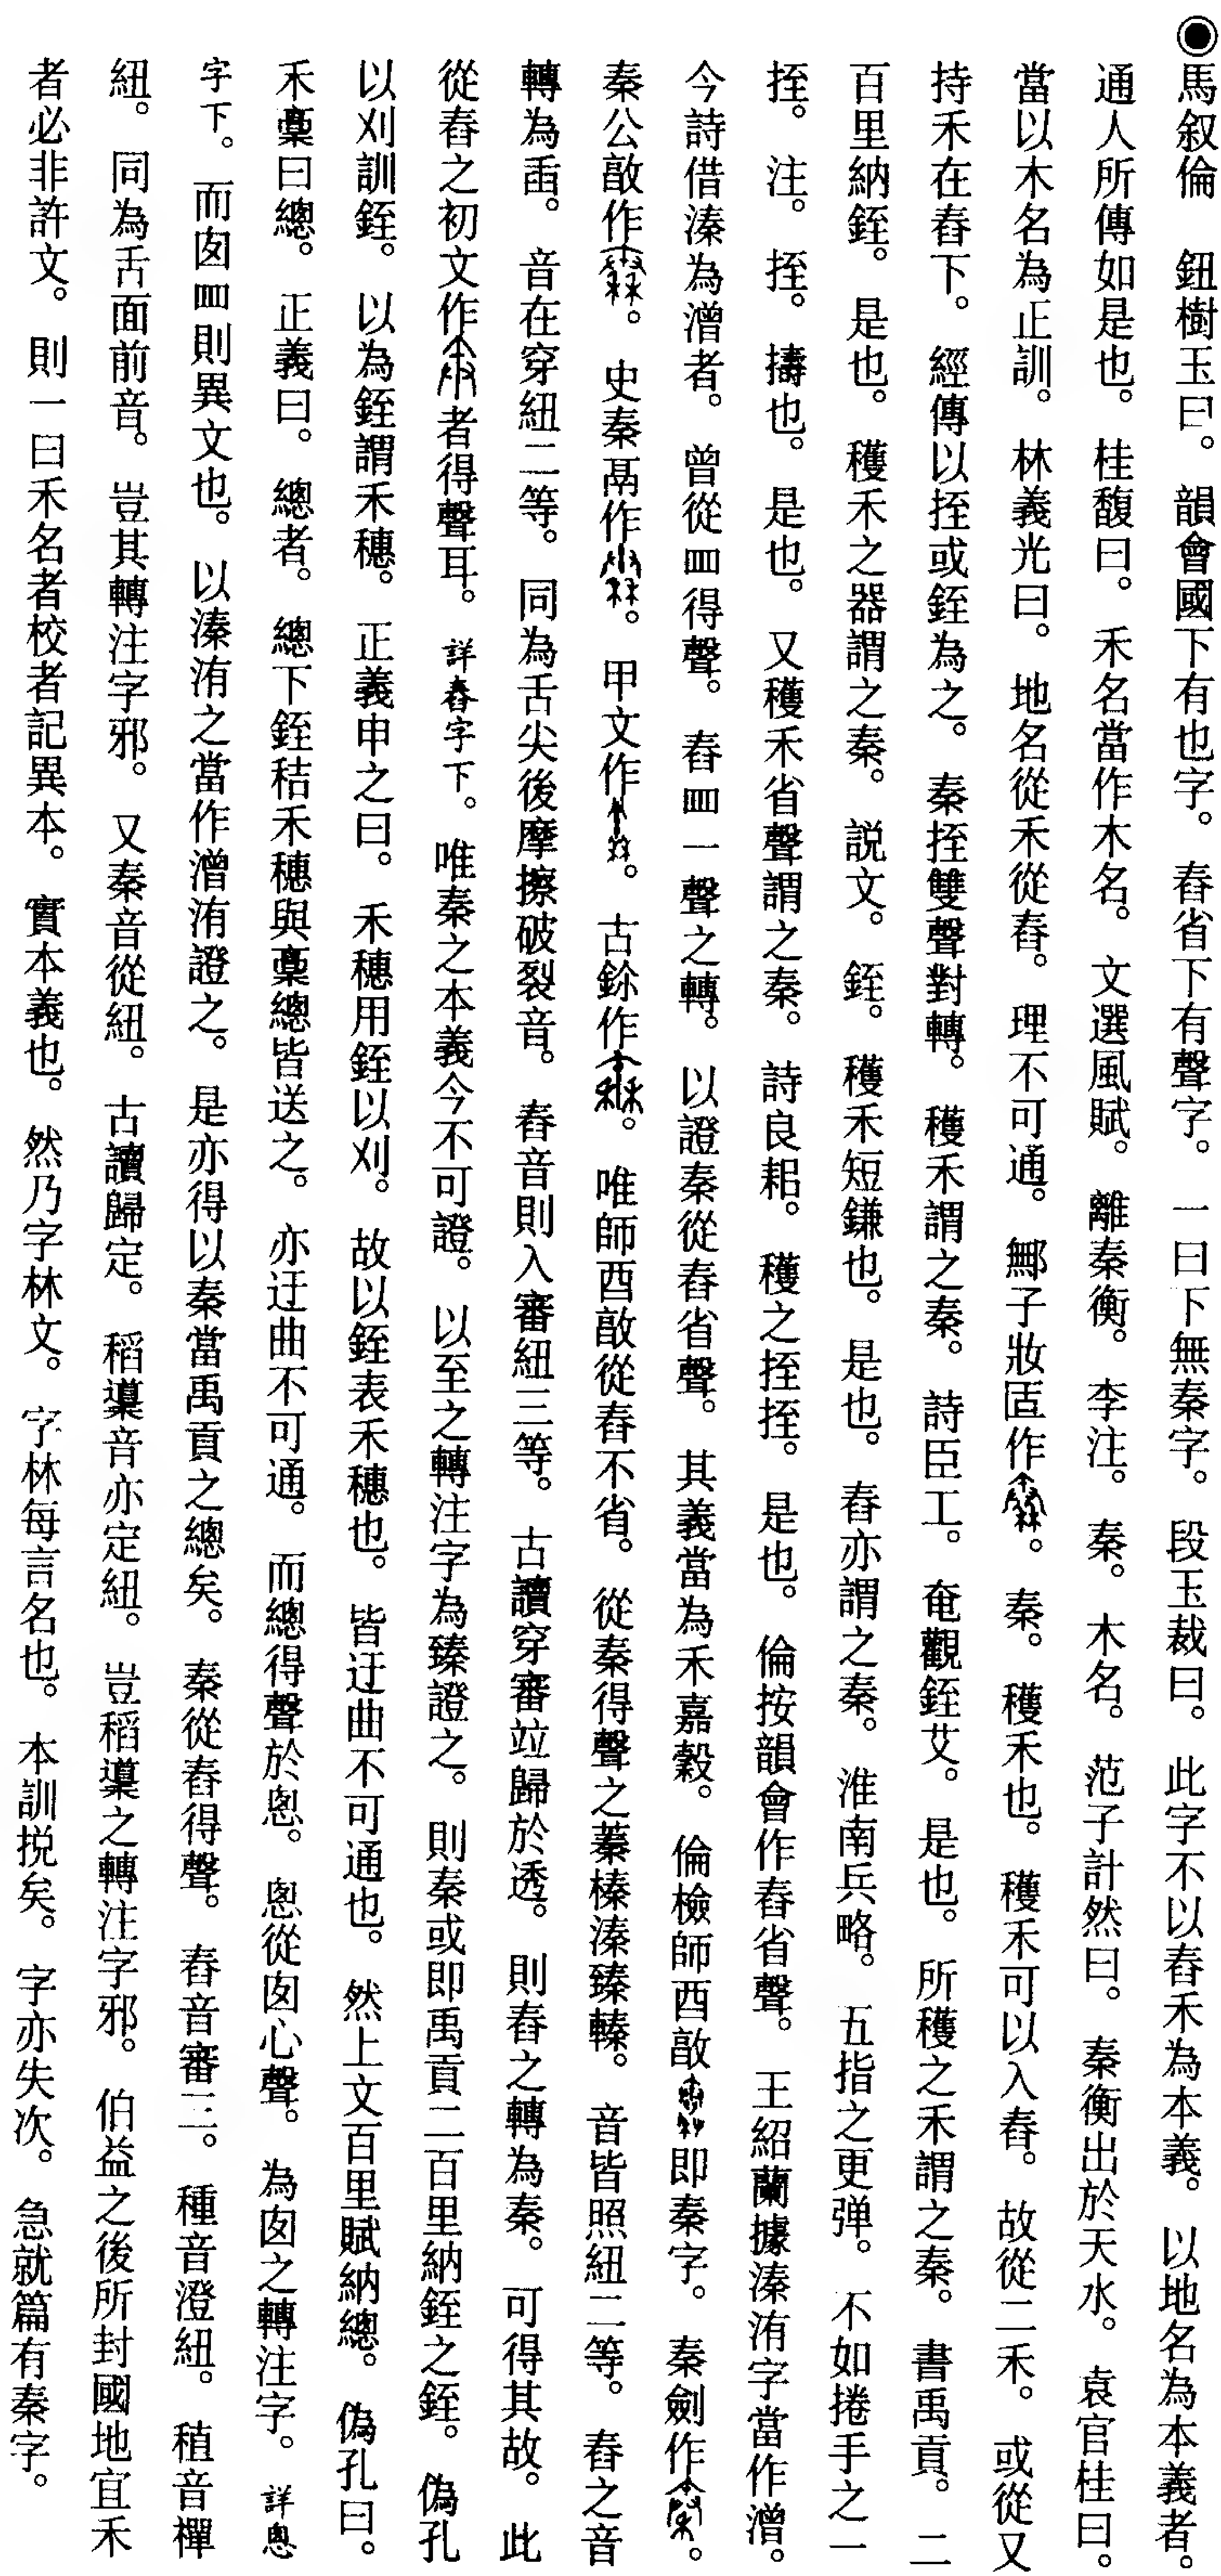 ●馬叙倫　鈕樹玉曰。韻會國下有也字。舂省下有聲字。一曰下無秦字。段玉裁曰。此字不以舂禾為本義。以地名為本義者。
通人所傳如是也。桂馥曰。禾名當作木名。文選風賦。離秦衡。李注。秦。木名。范子計然曰。秦衡出於天水。袁官桂曰。
當以木名為正訓。林義光曰。地名從禾從舂。理不可通。鄦子妝𠤳作。秦。穫禾也。穫禾可以入舂。故從二禾。或從又
持禾在舂下。經傳以挃或銍為之。秦挃雙聲對轉。穫禾謂之秦。詩臣工。奄觀銍艾。是也。所穫之禾謂之秦。書禹貢。二
百里納銍。是也。穫禾之器謂之秦。説文。銍。穫禾短鎌也。是也。舂亦謂之秦。淮南兵略。五指之更彈。不如捲手之一
挃。注。挃。擣也。是也。又穫禾省聲謂之秦。詩良耜。穫之挃挃。是也。倫按韻會作舂省聲。王紹蘭據溱洧字當作潧。
今詩借溱為潧者。曾從囬得聲。舂囬一聲之轉。以證秦從舂省聲。其義當為禾嘉穀。倫檢師酉敵即秦字。秦劍作。
秦公敵作。史秦鬲作。甲文作。古鉩作。唯師酉敵從舂不省。從秦得聲之蓁榛溱臻轃。音皆照紐二等。舂之音
轉為臿。音在穿紐二等。同為舌尖後摩擦破裂音。舂音則入審紐三等。古讀穿審竝歸於透。則舂之轉為秦。可得其故。此
從舂之初文作者得聲耳。詳舂字下。唯秦之本義今不可證。以至之轉注字為臻證之。則秦或即禹貢二百里納銍之銍。偽孔
以刈訓銍。以為銍謂禾穗。正義申之曰。禾穗用銍以刈。故以銍表禾穗也。皆迂曲不可通也。然上文百里賦納總。偽孔曰。
禾稾曰總。正義曰。總者。總下銍秸禾穗與稾總皆送之。亦迂曲不可通。而總得聲於悤。悤從囱心聲。為囱之轉注字。詳悤
字下。而囱囬則異文也。以溱洧之當作潧洧證之。是亦得以秦當禹貢之總矣。秦從舂得聲。舂音審三。種音澄紐。稙音禪
紐。同為舌面前音。豈其轉注字邪。又秦音從紐。古讀歸定。稻䆃音亦定紐。豈稻䆃之轉注字邪。伯益之後所封國地宜禾
者必非許文。則一曰禾名者校者記異本。實本義也。然乃字林文。字林每言名也。本訓捝矣。字亦失次。急就篇有秦字。